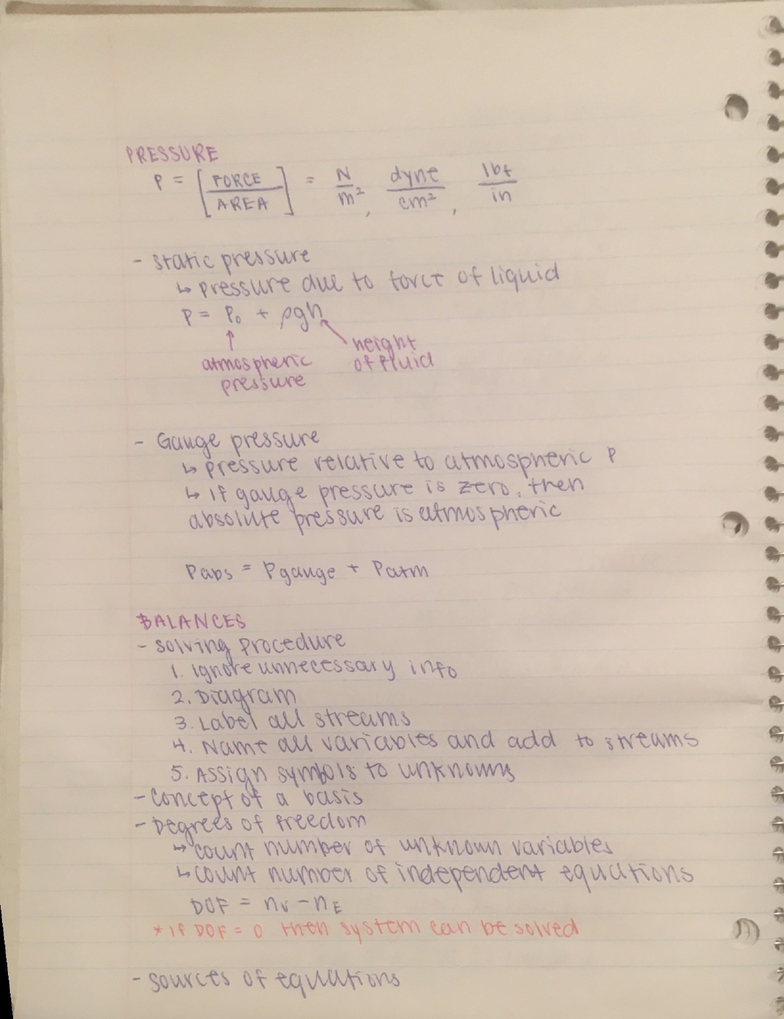 PRESSURE
P = [FORCE / AREA] = N/m², dyne/cm², lbf/in
- static pressure
↳ pressure due to force of liquid
P = P₀ + ρgh
atmospheric pressure
height of fluid
- Gauge pressure
↳ pressure relative to atmospheric P
↳ if gauge pressure is zero, then
absolute pressure is atmospheric
Pabs = Pgauge + Patm
BALANCES
- solving procedure
1. Ignore unnecessary info
2. Diagram
3. Label all streams
4. Name all variables and add to streams
5. Assign symbols to unknowns
- concept of a basis
- Degrees of freedom
↳ count number of unknown variables
↳ count number of independent equations
DOF = nᵥ - nE
* if DOF = 0 then system can be solved
- sources of equations